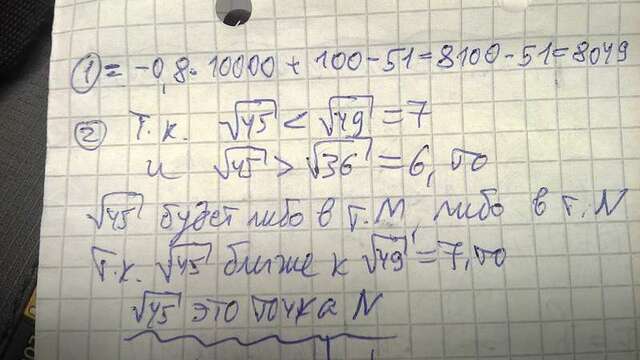 ① = -0,8·10000 + 100-51=8100-51=8049
② т.к. √45 < √49 = 7
и √45 > √36 = 6, то
√45 будет либо в т.М, либо в т.N
Т.к. √45 ближе к √49=7, то
√45 это точка N